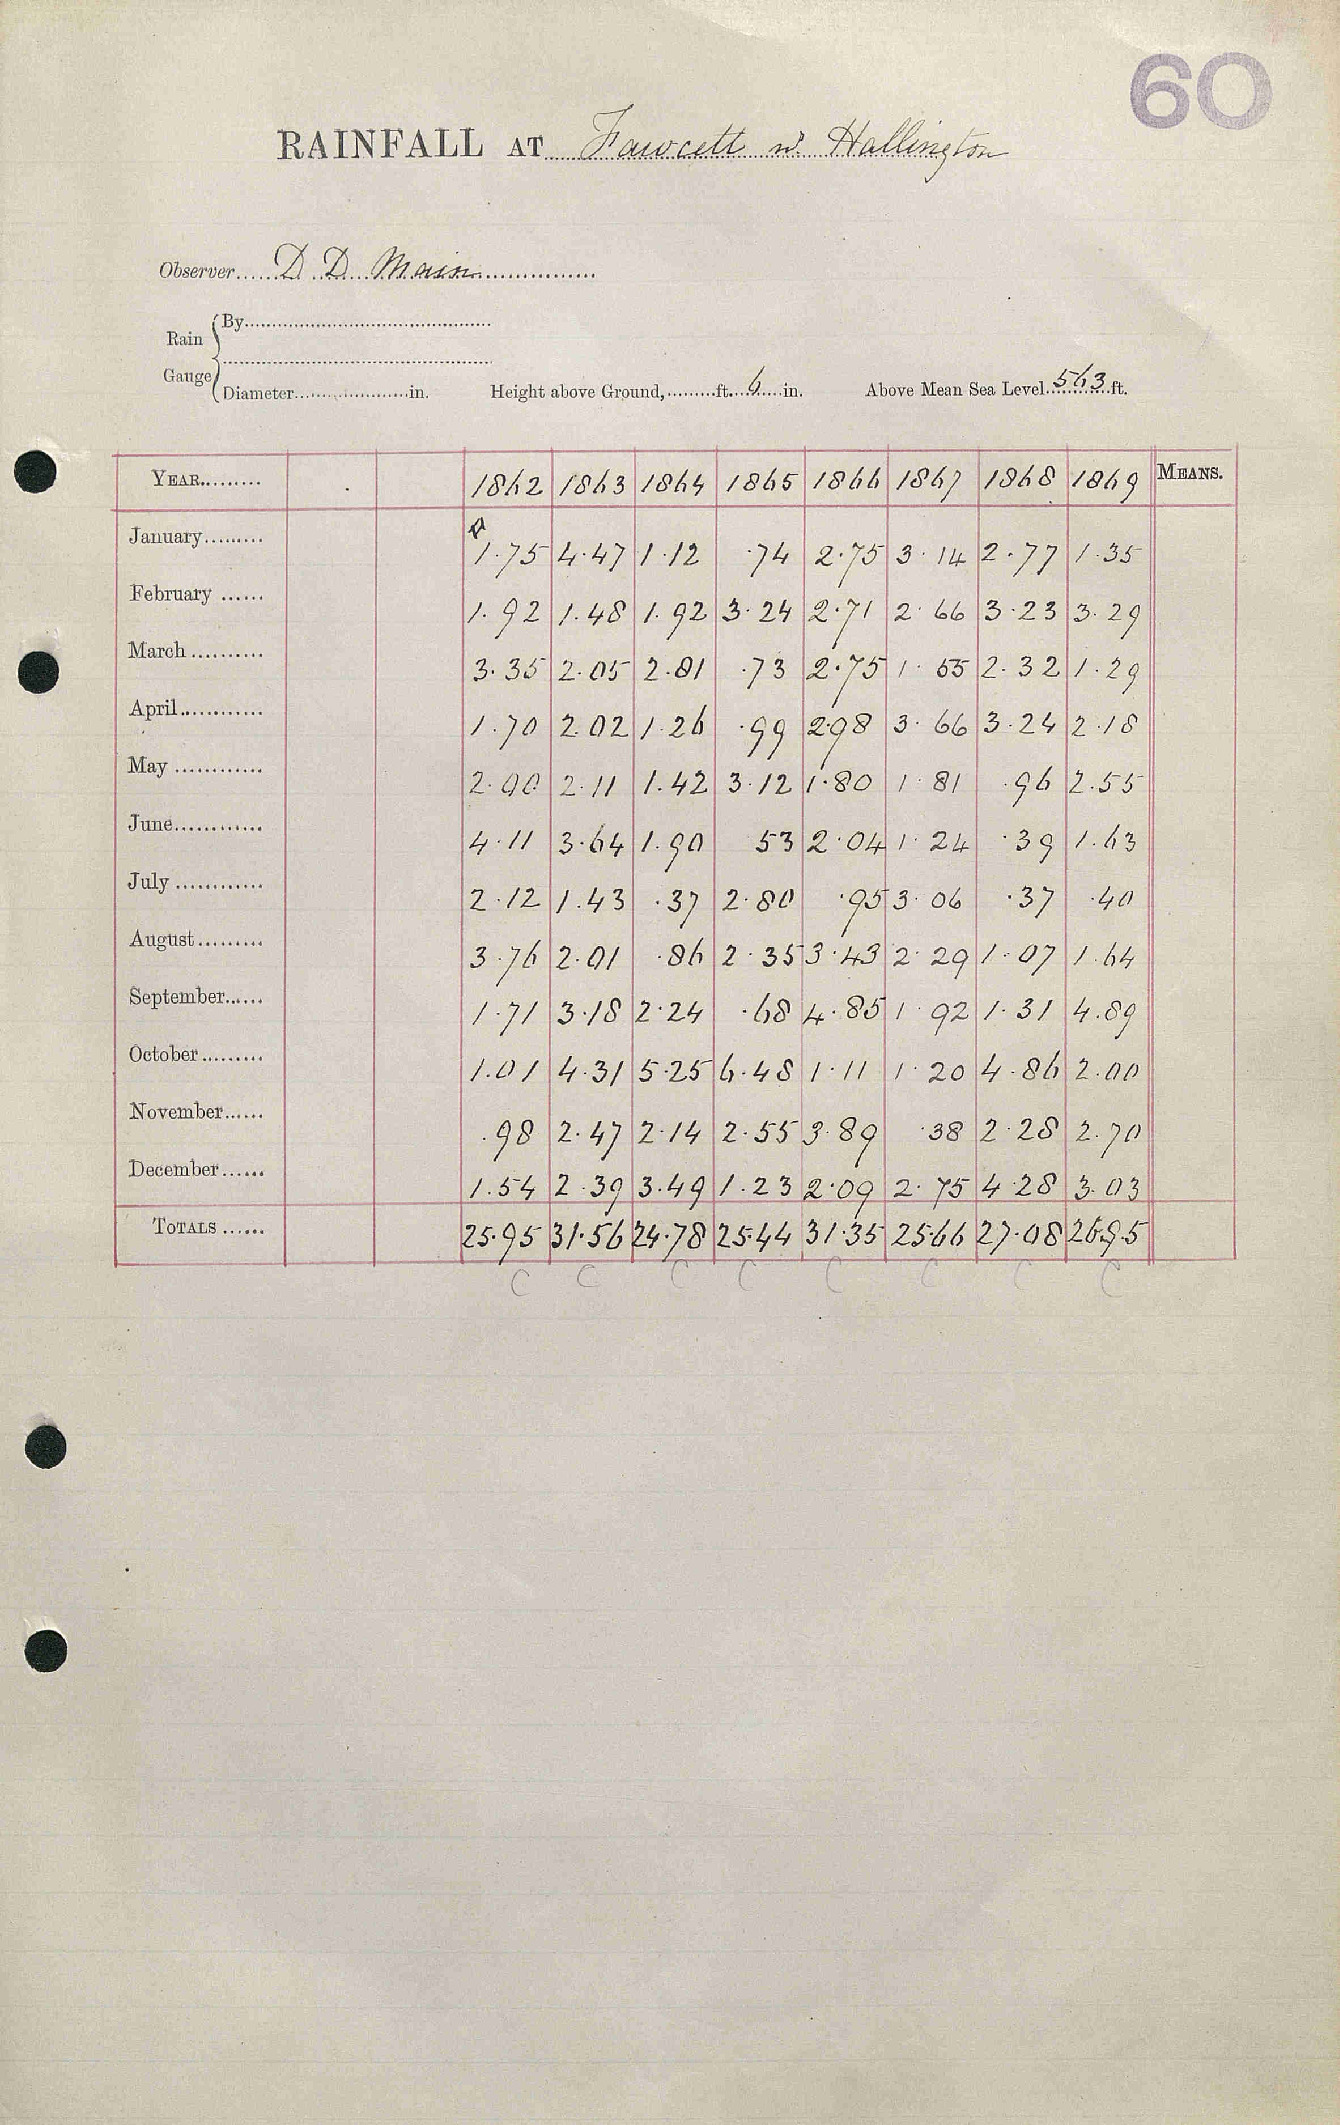 60
RAINFALL AT Fawcett w. Hallington
Observer D D Main
Rain Gauge { By
Diameter in. Height above Ground, ft. 6 in. Above Mean Sea Level 563 ft.
YEAR 1862 1863 1864 1865 1866 1867 1868 1869 MEANS.
January 1.75 4.47 1.12 .74 2.75 3.14 2.77 1.35
February 1.92 1.48 1.92 3.24 2.71 2.66 3.23 3.29
March 3.35 2.05 2.81 .73 2.75 1.55 2.32 1.29
April 1.70 2.02 1.26 .99 2.98 3.66 3.24 2.18
May 2.00 2.11 1.42 3.12 1.80 1.81 .96 2.55
June 4.11 3.64 1.90 53 2.04 1.24 .39 1.63
July 2.12 1.43 .37 2.80 .95 3.06 .37 .40
August 3.76 2.01 .86 2.35 3.43 2.29 1.07 1.64
September 1.71 3.18 2.24 .68 4.85 1.92 1.31 4.89
October 1.01 4.31 5.25 6.48 1.11 1.20 4.86 2.00
November .98 2.47 2.14 2.55 3.89 .38 2.28 2.70
December 1.54 2.39 3.49 1.23 2.09 2.75 4.28 3.03
TOTALS 25.95 31.56 24.78 25.44 31.35 25.66 27.08 26.95
C C C C C C C C